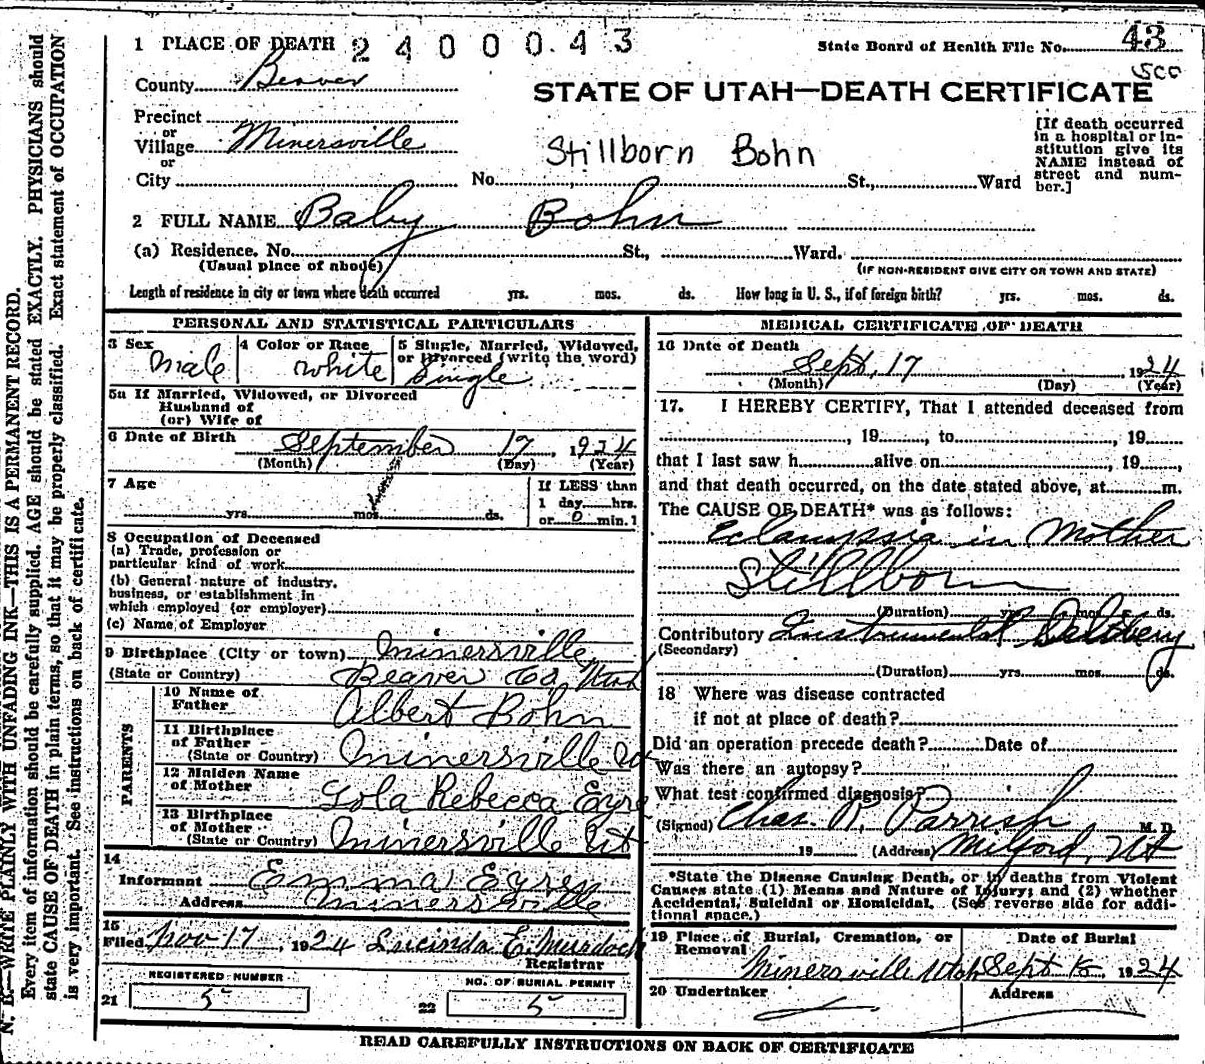 1 PLACE OF DEATH 2400043 State Board of Health File No. 43
County Beaver
STATE OF UTAH—DEATH CERTIFICATE
Precinct
or
Village Minersville
or
City No. St., Ward
Stillborn Bohn
[If death occurred
in a hospital or in-
stitution give its
NAME instead of
street and num-
ber.]
2 FULL NAME Baby Bohn
(a) Residence. No. St., Ward.
(Usual place of abode) (IF NON-RESIDENT GIVE CITY OR TOWN AND STATE)
Length of residence in city or town where death occurred yrs. mos. ds. How long in U. S., if of foreign birth? yrs. mos. ds.
PERSONAL AND STATISTICAL PARTICULARS
3 Sex Male
4 Color or Race White
5 Single, Married, Widowed,
or Divorced (write the word)
Single
5a If Married, Widowed, or Divorced
Husband of
(or) Wife of
6 Date of Birth September 17, 1924
(Month) (Day) (Year)
7 Age
yrs. mos. ds.
If LESS than
1 day hrs.
or 0 min.
8 Occupation of Deceased
(a) Trade, profession or
particular kind of work
(b) General nature of industry,
business, or establishment in
which employed (or employer)
(c) Name of Employer
9 Birthplace (City or town) Minersville
(State or Country) Beaver Co, Utah
PARENTS
10 Name of
Father Albert Bohn
11 Birthplace
of Father
(State or Country) Minersville
12 Maiden Name
of Mother Lola Rebecca Eyre
13 Birthplace
of Mother
(State or Country) Minersville Ut
14
Informant Emma Eyre
Address Minersville
15
Filed Nov 17, 1924 Lucinda E. Murdock
Registrar
REGISTERED NUMBER
21 5
NO. OF BURIAL PERMIT
22 5
MEDICAL CERTIFICATE OF DEATH
16 Date of Death
Sept. 17 1924
(Month) (Day) (Year)
17. I HEREBY CERTIFY, That I attended deceased from
, 19 , to , 19
that I last saw h alive on , 19 ,
and that death occurred, on the date stated above, at m.
The CAUSE OF DEATH* was as follows:
Eclampsia in Mother
Stillborn
(Duration) yrs. mos. ds.
Contributory Instrumental Delivery
(Secondary)
(Duration) yrs. mos. ds.
18 Where was disease contracted
if not at place of death?
Did an operation precede death? Date of
Was there an autopsy?
What test confirmed diagnosis?
(Signed) Chas. R. Parrish M. D.
19 (Address) Milford, Ut
*State the Disease Causing Death, or in deaths from Violent
Causes state (1) Means and Nature of Injury; and (2) whether
Accidental, Suicidal or Homicidal. (See reverse side for addi-
tional space.)
19 Place of Burial, Cremation, or
Removal
Minersville Utah
Date of Burial
Sept 1924
20 Undertaker Address
READ CAREFULLY INSTRUCTIONS ON BACK OF CERTIFICATE
N. B.—WRITE PLAINLY WITH UNFADING INK—THIS IS A PERMANENT RECORD.
Every item of information should be carefully supplied. AGE should be stated EXACTLY. PHYSICIANS should
state CAUSE OF DEATH in plain terms, so that it may be properly classified. Exact statement of OCCUPATION
is very important. See instructions on back of certificate.